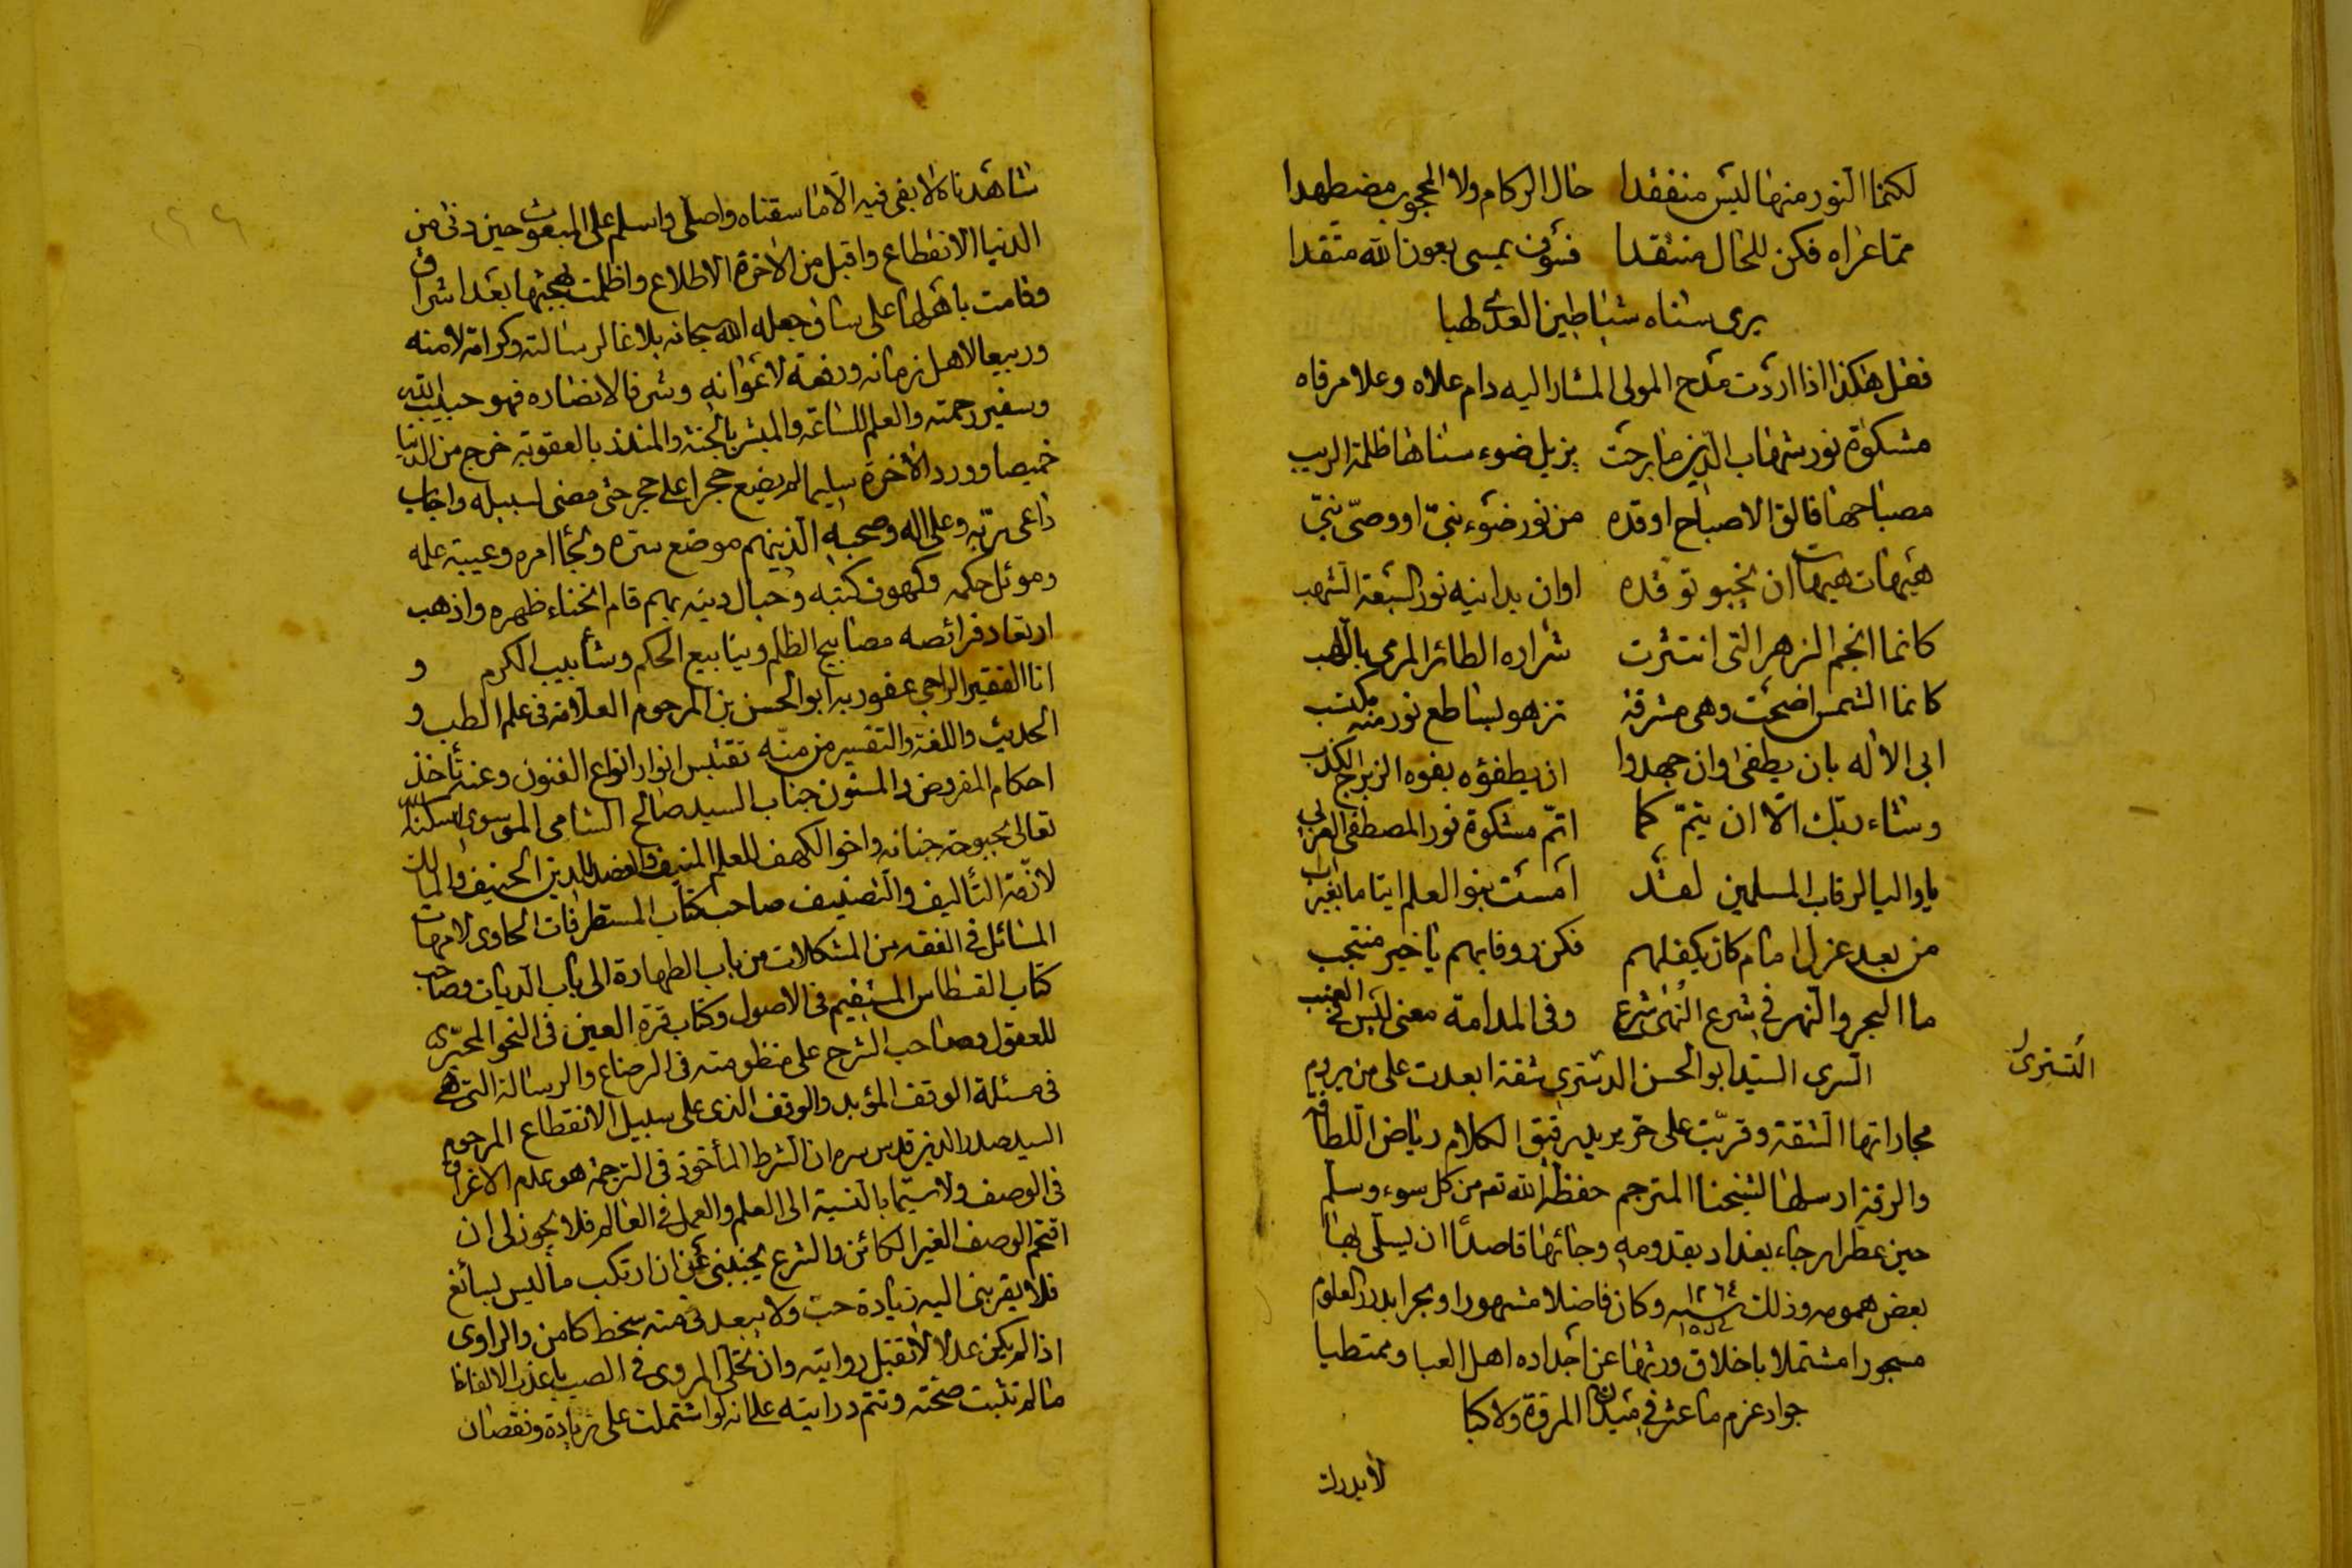 لكنما النور منها ليس منفقدا خال الركام ولا المحجوب مضطهدا
مما عراه فكن للحال منتقدا فسوف يمسى بعون الله متقدا
يرى سناه شياطين العدى لهبا
فقل هكذا اذا اردت مدح المولى المشار اليه دام علاه وعلا مرقاه
مشكوة نور شهاب الدين ما برحت يزيل ضوء سناها ظلمة الريب
مصباحها فالق الاصباح اوقده من نور ضوء نبىّ او وصىّ نبىّ
هيهات هيهات ان يخبو توقده او ان يدانيه نور السبعة الشهب
كانما انجم الزهر التى انتثرت شراره الطائر المرمى باللهب
كانما الشمس اضحت وهى مشرقة تزهو بساطع نور منه مكتسب
ابى الاله بان يطفى وان جهدوا ان يطفؤه بفوه الزبرج الكذب
وشاء ربك الا ان يتمّ كما اتمّ مشكوة نور المصطفى العربى
يا واليا لرقاب المسلمين لقد امست بنو العلم ايتاما بغير اب
من بعد عزل امام كان يكفلهم فكن رؤفا بهم يا خير منتجب
ما البحر والنهر فى شرع النهى شرع وفى المدامة معنى ليس فى العنب
السرى السيد ابو الحسن الدسترى شقة ابعدت على من يروم
التسترى
مجاراتها الشقة وقربت على من يريد رقيق الكلام رياض اللطافة
والرقة ارسلها لشيخنا المترجم حفظه الله تع من كل سوء وسلم
حين عطر ارجاء بغداد بقدومه وجائها قاصدا ان يسلى بها
بعض همومه وذلك سنه ١٢٦٤ وكان فاضلا مشهورا وبحرا بدرر العلوم
مسجورا مشتملا باخلاق ورثها عن اجداده اهل العبا وممتطيا
جواد عزم ما عثر فى ميدان المروة ولا كبا
لا يدرك
شاهدناه لا بقى فيه الا ما سقناه واصلى واسلم على المبعوث حين دنى من
الدنيا الانقطاع واقبل من الاخرة الاطلاع واظلمت بهجتها بعد اشراق
وقامت باهلها على ساق جعله الله سبحانه بلاغا لرسالته وكرامة لامته
وربيعا لاهل زمانه ورفعة لاعوانه وشرفا لانصاره فهو حبيب الله
وسفير رحمته والعلم للساعة والمبشر بالجنة والمنذر بالعقوبة خرج من الدنيا
خميصا وورد الاخرة سليما لم يضع حجرا على حجر حتى مضى لسبيله واجاب
داعى ربه وعلى اله وصحبه الذين هم موضع سره ولجأ امره وعيبة علمه
وموئل حكمه وكهوف كتبه وجبال دينه بهم قام انحناء ظهره واذهب
ارتعاد فرائصه مصابيح الظلم وينابيع الحكم وشأبيب الكرم و
انا الفقير الراجى عفو ربه ابو الحسن بن المرحوم العلامة فى علم الطب و
الحديث واللغة والتفسير من منه تقتبس انوار انواع الفنون وعنه تأخذ
احكام المفروض والمسنون جناب السيد صالح الشامى الموسوى اسكنه الله
تعالى بحبوحة جنانه واخو الكهف للعلم المنيف والعضد للدين الحنيف والمالك
لازمة التأليف والتصنيف صاحب كتاب المستطرفات الحاوى لامهات
المسائل فى الفقه من المشكلات من باب الطهارة الى باب الديات وصاحب
كتاب القسطاس المستقيم فى الاصول وكتاب قرة العين فى النحو المحيّرى
للعقول وصاحب الشرح على منظومته فى الرضاع والرسالة التى هى
فى مسئلة الوقف المؤبد والوقف الذى على سبيل الانقطاع المرحوم
السيد صدر الدين قدس سره ان الشرط المأخوذ فى الترجمة هو عدم الاغراق
فى الوصف ولا سيما بالنسبة الى العلم والعمل فى العالم فلا يجوز لى ان
اقتحم الوصف الغير الكائن والشرع يجنبنى عن ان ارتكب ما ليس بسائغ
فلا يقربنى اليه زيادة حب ولا يبعدنى منه سخط كامن والراوى
اذا لم يكن عدلا لا تقبل روايته وان تحلى المروى فى الصب باعذب الالفاظ
ما لم تثبت صحته وتتم درايته على انه لو اشتملت على زيادة ونقصان